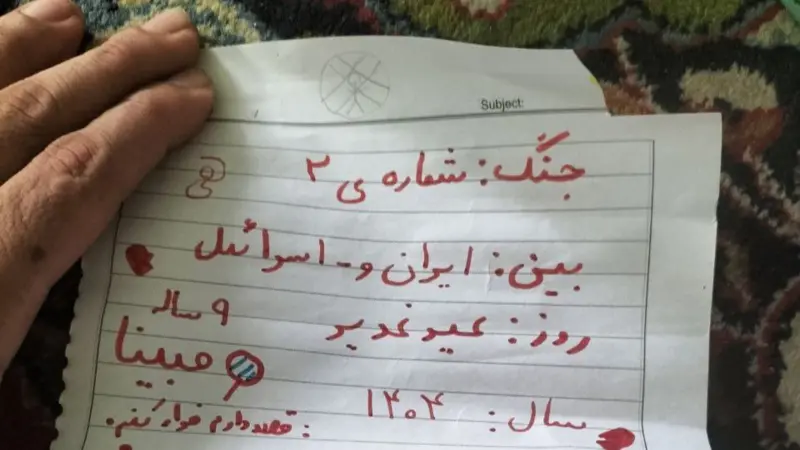 Subject:
جنگ: شماره ی ۲
بین: ایران و- اسرائیل
روز: عید غدیر
۹ ساله
مبینا
سال: ۱۴۰۴
: قصد دارم فرار کنم.